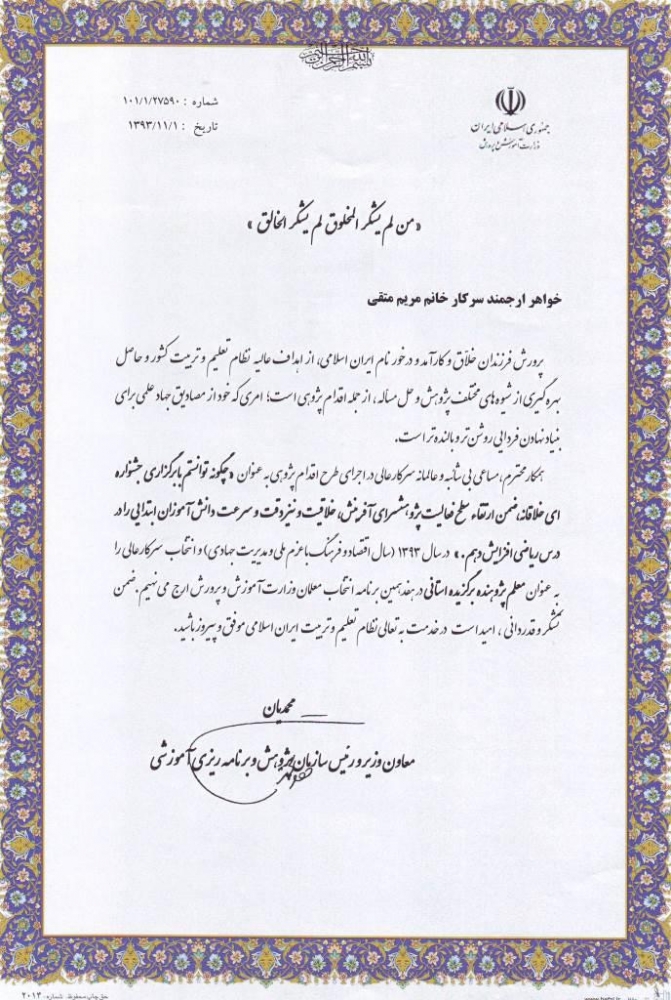 بسم الله الرحمن الرحیم
جمهوری اسلامی ایران
وزارت آموزش و پرورش
شماره : ۱۰۱/۱/۲۷۵۹۰
تاریخ : ۱۳۹۳/۱۱/۱
« من لم یشکر المخلوق لم یشکر الخالق »
خواهر ارجمند سرکار خانم مریم متقی
پرورش فرزندان خلاق و کارآمد و درخور نام ایران اسلامی، از اهداف عالیه نظام تعلیم و تربیت کشور و حاصل
بهره گیری از شیوه های مختلف پژوهش و حل مساله، از جمله اقدام پژوهی است؛ امری که خود از مصادیق جهاد علمی برای
بنیاد نهادن فردایی روشن تر و بالنده تر است.
همکار محترم، مساعی بی شائبه و عالمانه سرکارعالی در اجرای طرح اقدام پژوهی به عنوان «چگونه توانستم با برگزاری جشنواره
ای خلاقانه، ضمن ارتقاء سطح فعالیت پژوهشسرای آفرینش، خلاقیت و نیز دقت و سرعت دانش آموزان ابتدایی را در
درس ریاضی افزایش دهم.» در سال ۱۳۹۳ (سال اقتصاد و فرهنگ با عزم ملی و مدیریت جهادی) و انتخاب سرکارعالی را
به عنوان معلم پژوهنده برگزیده استانی در هفدهمین برنامه انتخاب معلمان وزارت آموزش و پرورش ارج می نهیم. ضمن
تشکر و قدردانی، امید است در خدمت به تعالی نظام تعلیم و تربیت ایران اسلامی موفق و پیروز باشید.
محمدیان
معاون وزیر و رئیس سازمان پژوهش و برنامه ریزی آموزشی
حق چاپ محفوظ. شماره: ۲۰۱۴